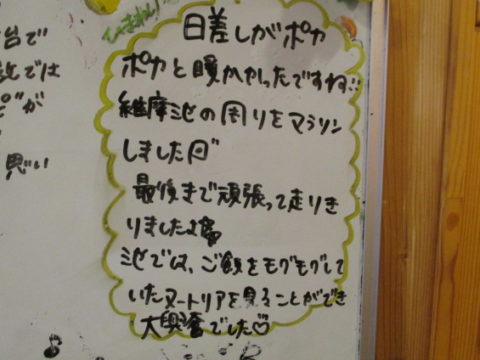 台で
では
が
思い
日差しがポカ
ポカと暖かかったですね!!
維摩池の周りをマラソン
しました
最後まで頑張って走りき
りましたよ
池では、ご飯をモグモグして
いたヌートリアを見ることができ
大興奮でした♡